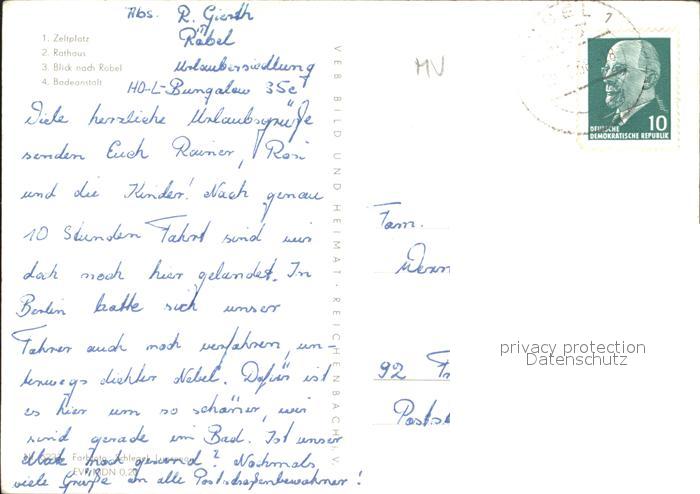 Abs. R. Gierth
Röbel
Urlaubersiedlung
HO-L-Bungalow 35c
1. Zeltplatz
2. Rathaus
3. Blick nach Röbel
4. Badeanstalt
Viele herzliche Urlaubsgrüße
senden Euch Rainer, Rosi
und die Kinder! Nach genau
10 Stunden Fahrt sind wir
doch noch hier gelandet. In
Berlin hatte sich unser
Fahrer auch noch verfahren, un-
terwegs dichter Nebel. Dafür ist
es hier um so schöner, wir
sind gerade im Bad. Ist unser
noch gesund? Nochmals
viele Grüße an alle Poststraßenbewohner!
VEB BILD UND HEIMAT · REICHENBACH I. V.
EVP MDN 0,20
MV
DEUTSCHE
DEMOKRATISCHE REPUBLIK
10
Fam.
92
privacy protection
Datenschutz